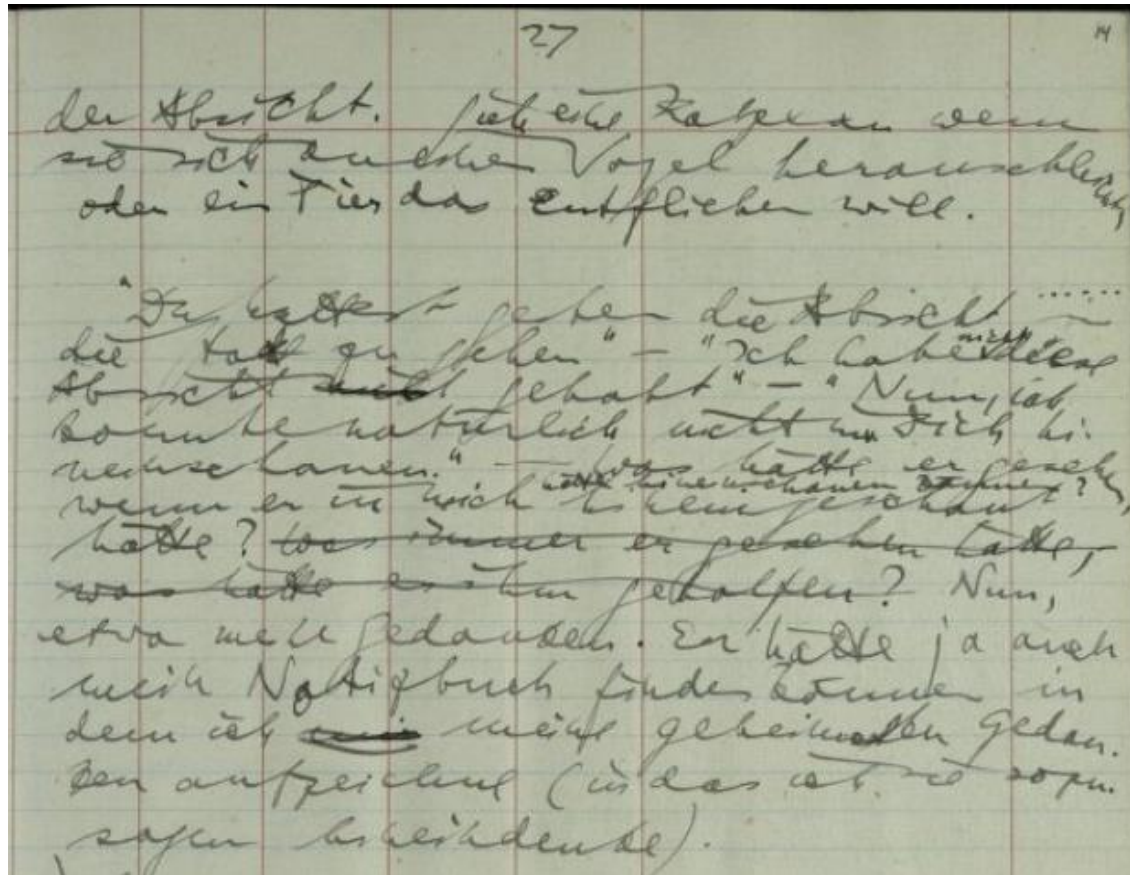 27
14
der Absicht. Sieh eine Katze an wenn
sie sich an einen Vogel heranschleicht,
oder ein Tier das entfliehen will.
"Du hattest gehen die Absicht ......
die zu gehen" – "Ich habe nicht diese
Absicht nicht gehabt" – "Nun, ich
konnte natürlich nicht in Dich hi-
neinschauen." – Was hätte er gesehen,
hätte hineinschauen können?
wenn er in mich hineingeschaut
hätte? Was immer er gesehen hätte,
was hätte es ihm geholfen? Nun,
etwa meine Gedanken. Er hätte ja auch
mein Notizbuch finden können in
dem ich meine geheimsten Gedan-
ken aufzeichne (in das ich sie sozu-
sagen hineindenke).